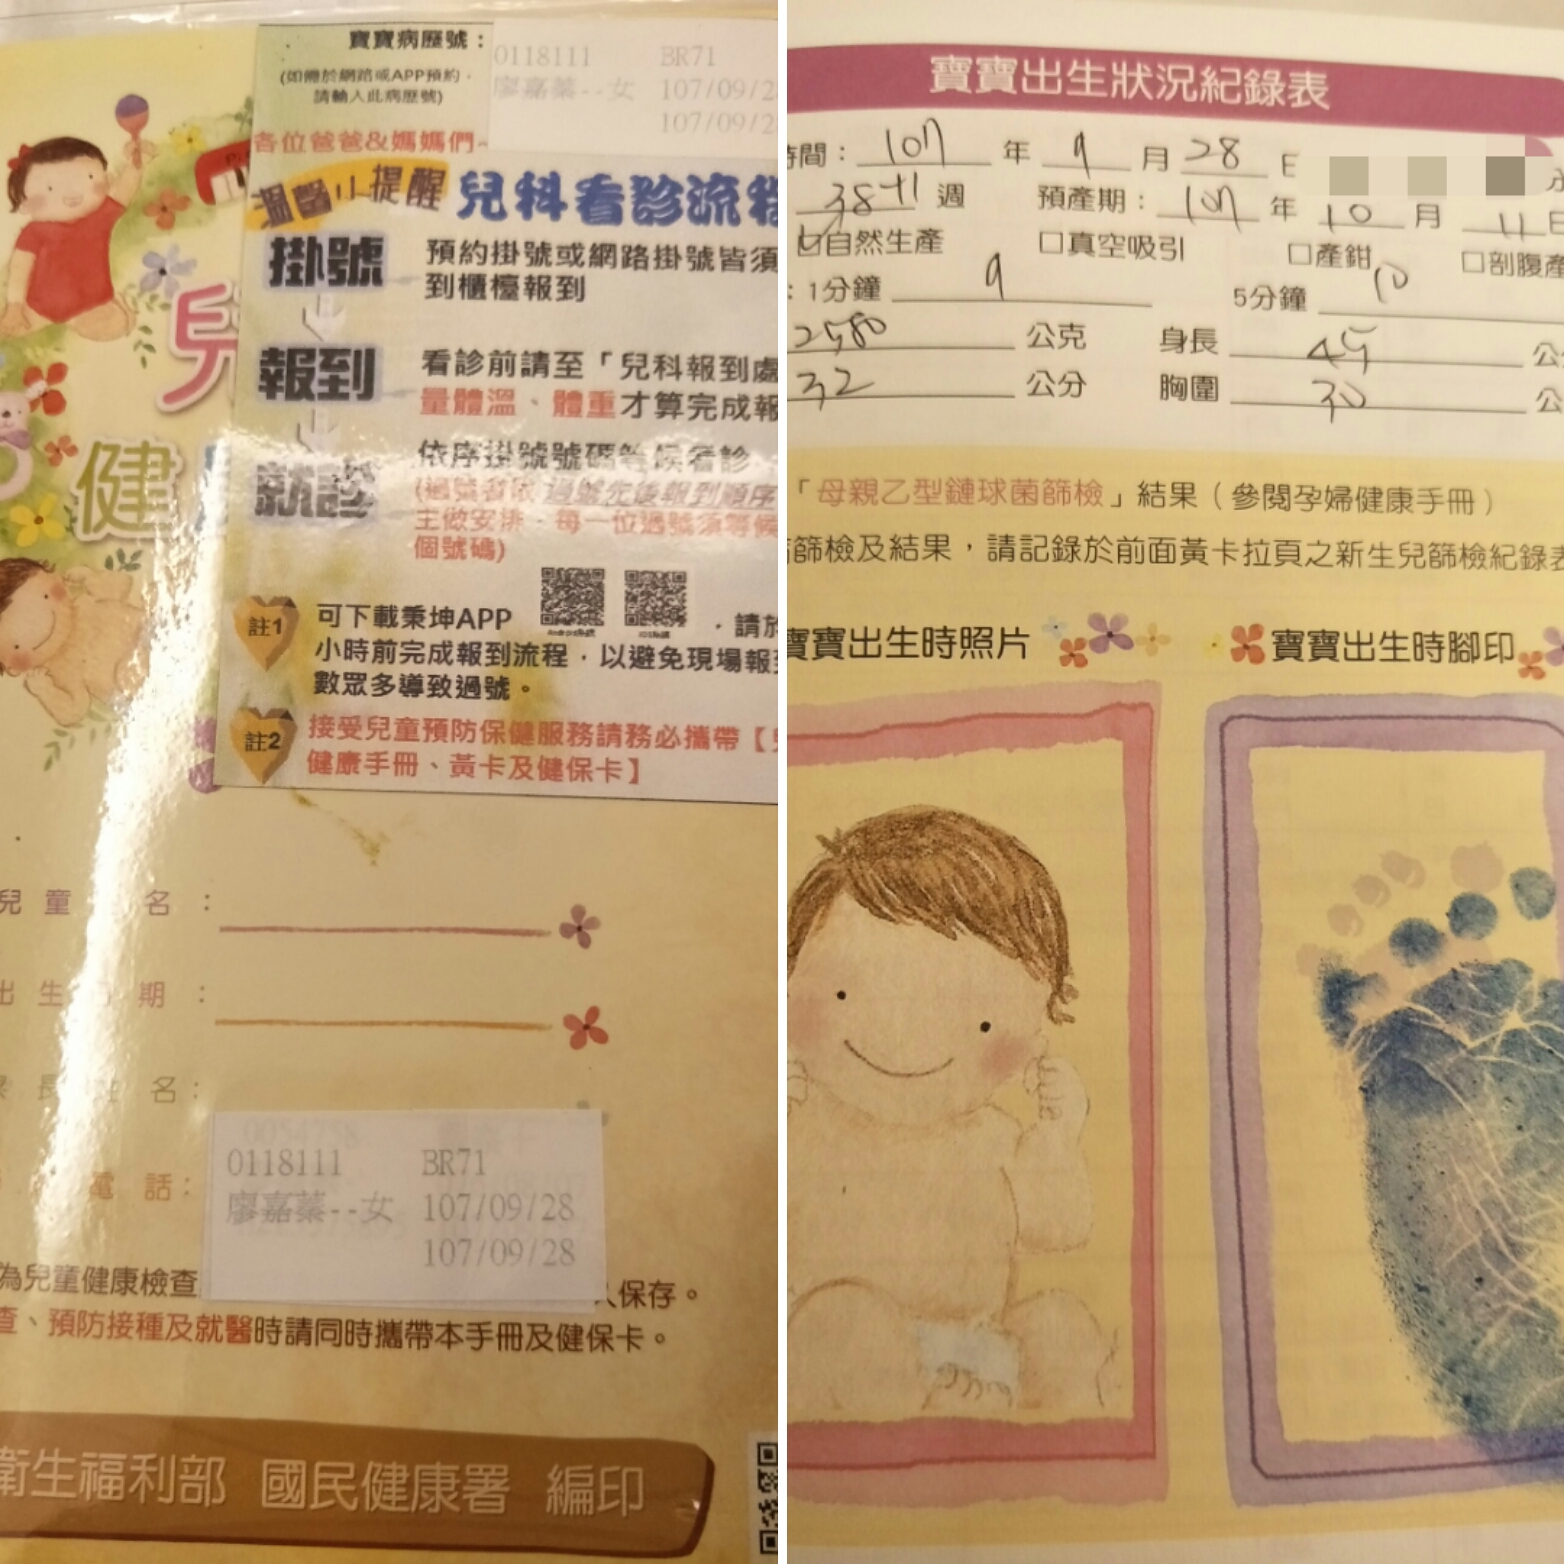 寶寶病歷號：
(如需於網路或APP預約，
請輸入此病歷號)
0118111 BR71
廖嘉蓁--女 107/09/2
107/09/2
各位爸爸&媽媽們~
溫馨小提醒 兒科看診流程
掛號
預約掛號或網路掛號皆須
到櫃檯報到
報到
看診前請至「兒科報到處
量體溫、體重才算完成報
就診
依序掛號號碼等候看診，
(過號者依 過號先後報到順序
主做安排，每一位過號須等候
個號碼)
註1
可下載秉坤APP
，請於
小時前完成報到流程，以避免現場報到
數眾多導致過號。
註2
接受兒童預防保健服務請務必攜帶【兒
健康手冊、黃卡及健保卡】
兒
健
兒童 名：
出生日期：
長姓名：
電話：
0118111 BR71
廖嘉蓁--女 107/09/28
107/09/28
為兒童健康檢查
久保存。
查、預防接種及就醫時請同時攜帶本手冊及健保卡。
衛生福利部 國民健康署 編印
寶寶出生狀況紀錄表
時間：107年9月28日
38+1週 預產期：107年10月11日
☑自然生產 □真空吸引 □產鉗 □剖腹產
：1分鐘 9 5分鐘 10
2580 公克 身長 45 公
32 公分 胸圍 30 公
「母親乙型鏈球菌篩檢」結果（參閱孕婦健康手冊）
篩檢及結果，請記錄於前面黃卡拉頁之新生兒篩檢紀錄表
寶寶出生時照片
寶寶出生時腳印